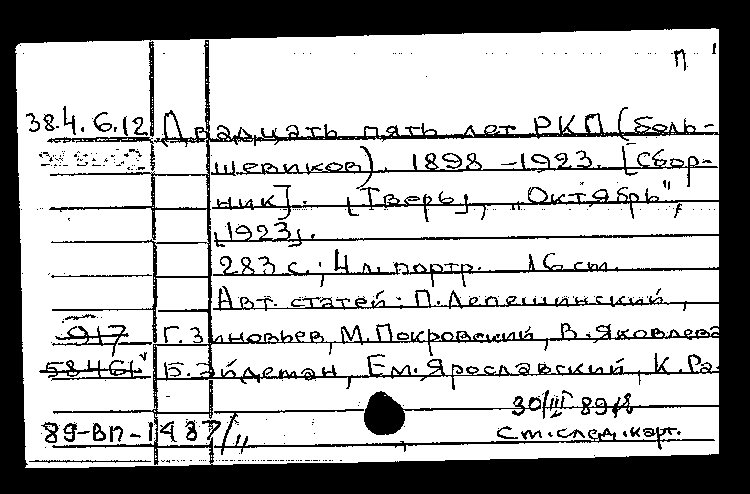 П
38.4.6.12 Двадцать пять лет РКП (боль-
шевиков). 1898-1923. [Сбор-
ник]. [Тверь], „Октябрь",
[1923].
283 с.; 4 л. портр. 16 см.
Авт. статей: П.Лепешинский,
917 Г.Зиновьев, М.Покровский, В.Яковлева
58461 Б.Эйдеман, Ем.Ярославский, К.Ра-
30/III 89
89-ВП-1487/ см.след.карт.